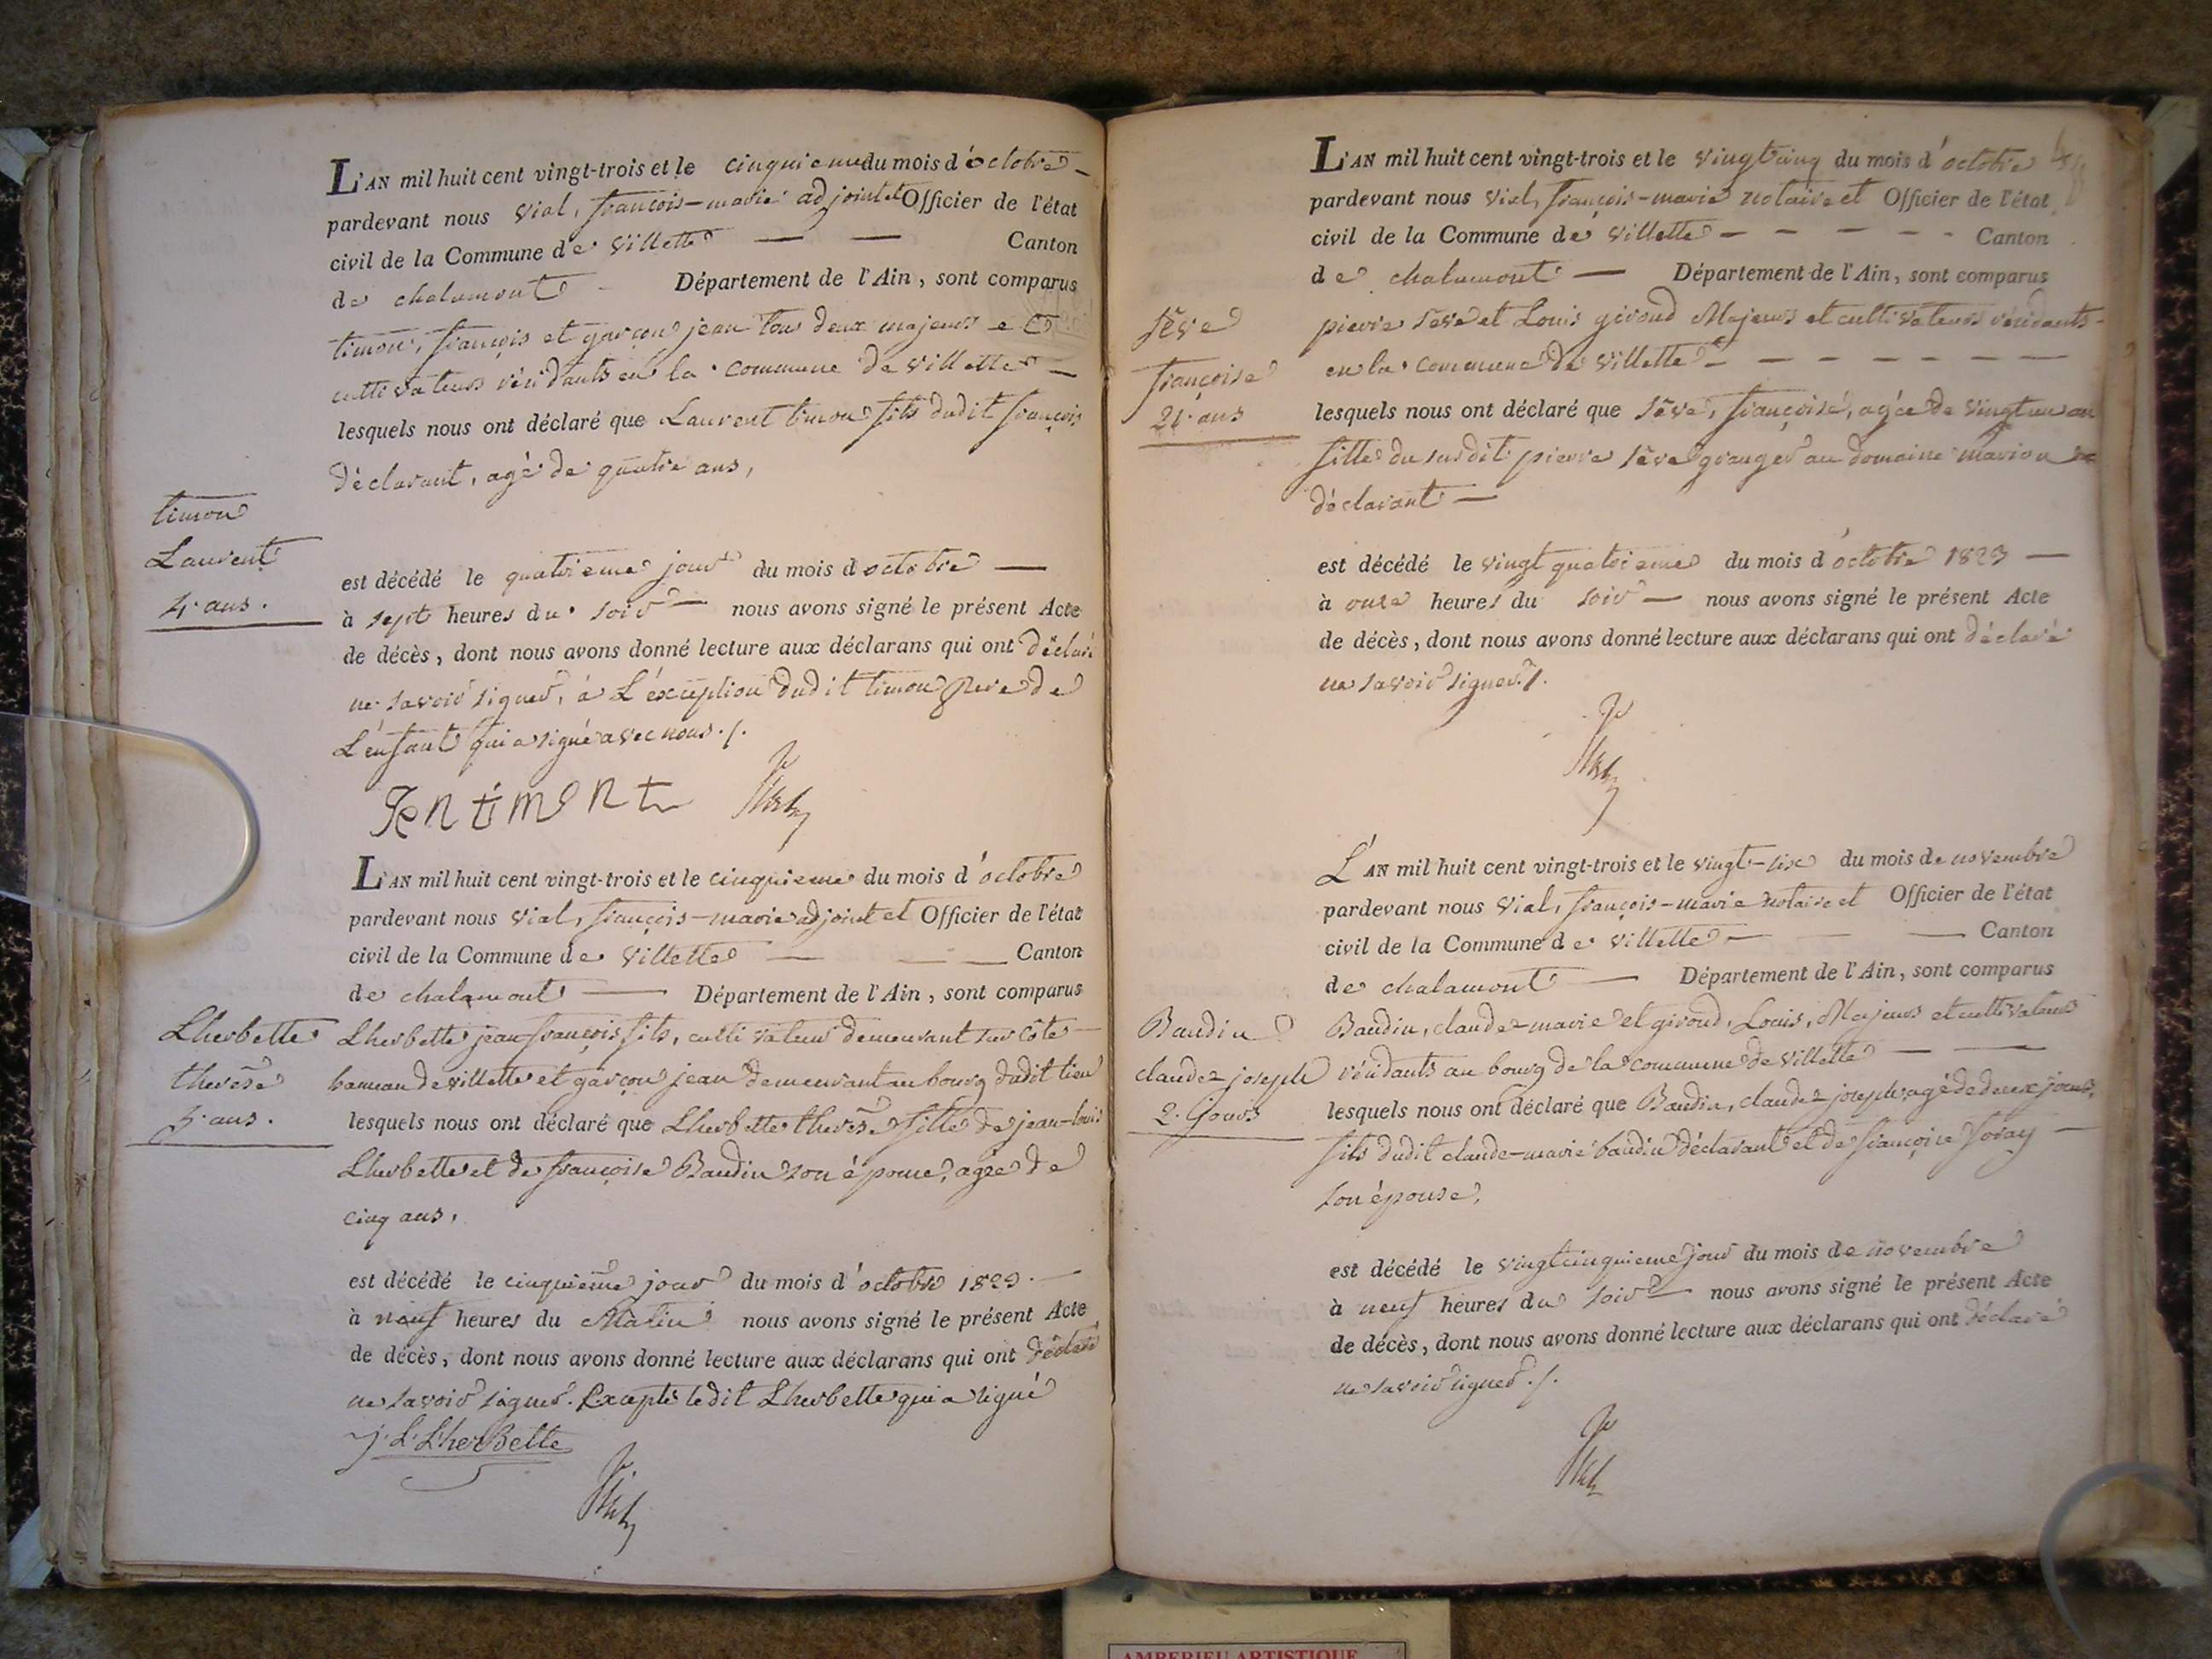 L'AN mil huit cent vingt-trois et le cinquieme du mois d'octobre
pardevant nous vial, françois-marie adjoint et Officier de l'état
civil de la Commune de villette — — Canton
de chalamont Département de l'Ain, sont comparus
timon, françois et garçon jean tous deux majeurs et
cultivateurs résidants en la commune de villette —
lesquels nous ont déclaré que Laurent timon fils dudit françois
déclarant, agé de quatre ans,
timon
Laurent
4. ans.
est décédé le quatrieme jour du mois d octobre —
à sept heures du soir — nous avons signé le présent Acte
de décès, dont nous avons donné lecture aux déclarans qui ont déclaré
ne savoir signer, à L'éxception dudit timon pere de
L'enfant qui a signé avec nous ./.
L'AN mil huit cent vingt-trois et le cinquieme du mois d'octobre
pardevant nous vial, françois-marie adjoint et Officier de l'état
civil de la Commune de villette — — — Canton
de chalamont — Département de l'Ain, sont comparus
Lherbette
therèse
5. ans.
Lherbette jean françois fils, cultivateur demeurant sur côte
hameau de villette et garçon jean demeurant au bourg dudit lieu
lesquels nous ont déclaré que Lherbette therèse fille de jean-louis
Lherbette et de françoise Baudin son épouse, agée de
cinq ans,
est décédé le cinquieme jour du mois d'octobre 1823. —
à neuf heures du Matin nous avons signé le présent Acte
de décès, dont nous avons donné lecture aux déclarans qui ont déclaré
ne savoir signer. Excepté ledit Lherbette qui a signé
j. L. L'herBette
L'AN mil huit cent vingt-trois et le vingt cinq du mois d'octobre
pardevant nous vial, françois-marie notaire et Officier de l'état
civil de la Commune de villette — — — — — Canton
de chalamont — Département de l'Ain, sont comparus
Sève
françoise
21. ans
pierre Sève et Louis giroud Majeurs et cultivateurs résidants
en la commune de villette — — — — — — —
lesquels nous ont déclaré que Sève, françoise, agée de vingt un an
fille du susdit pierre Sève granger au domaine marion
déclarant —
est décédé le vingt quatrieme du mois d'octobre 1823 —
à onze heures du soir — nous avons signé le présent Acte
de décès, dont nous avons donné lecture aux déclarans qui ont déclaré
ne savoir signer ./.
L'AN mil huit cent vingt-trois et le vingt-six du mois de novembre
pardevant nous vial, françois-marie notaire et Officier de l'état
civil de la Commune de villette — — — Canton
de chalamont — Département de l'Ain, sont comparus
Baudin
claude-joseph
2. jours
Baudin, claude-marie et giroud, Louis, Majeurs et cultivateurs
résidants au bourg de la commune de villette — —
lesquels nous ont déclaré que Baudin, claude-joseph, agé de deux jours,
fils dudit claude-marie baudin déclarant et de françoise Joray —
son épouse,
est décédé le vingt cinquieme jour du mois de novembre
à neuf heures du soir — nous avons signé le présent Acte
de décès, dont nous avons donné lecture aux déclarans qui ont déclaré
ne savoir signer ./.
AMBERIEU ARTISTIQUE